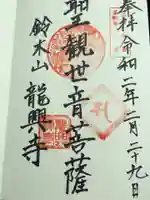 奉拝 令和二年二月二十九日
聖観世音菩薩
鈴木山 龍興寺